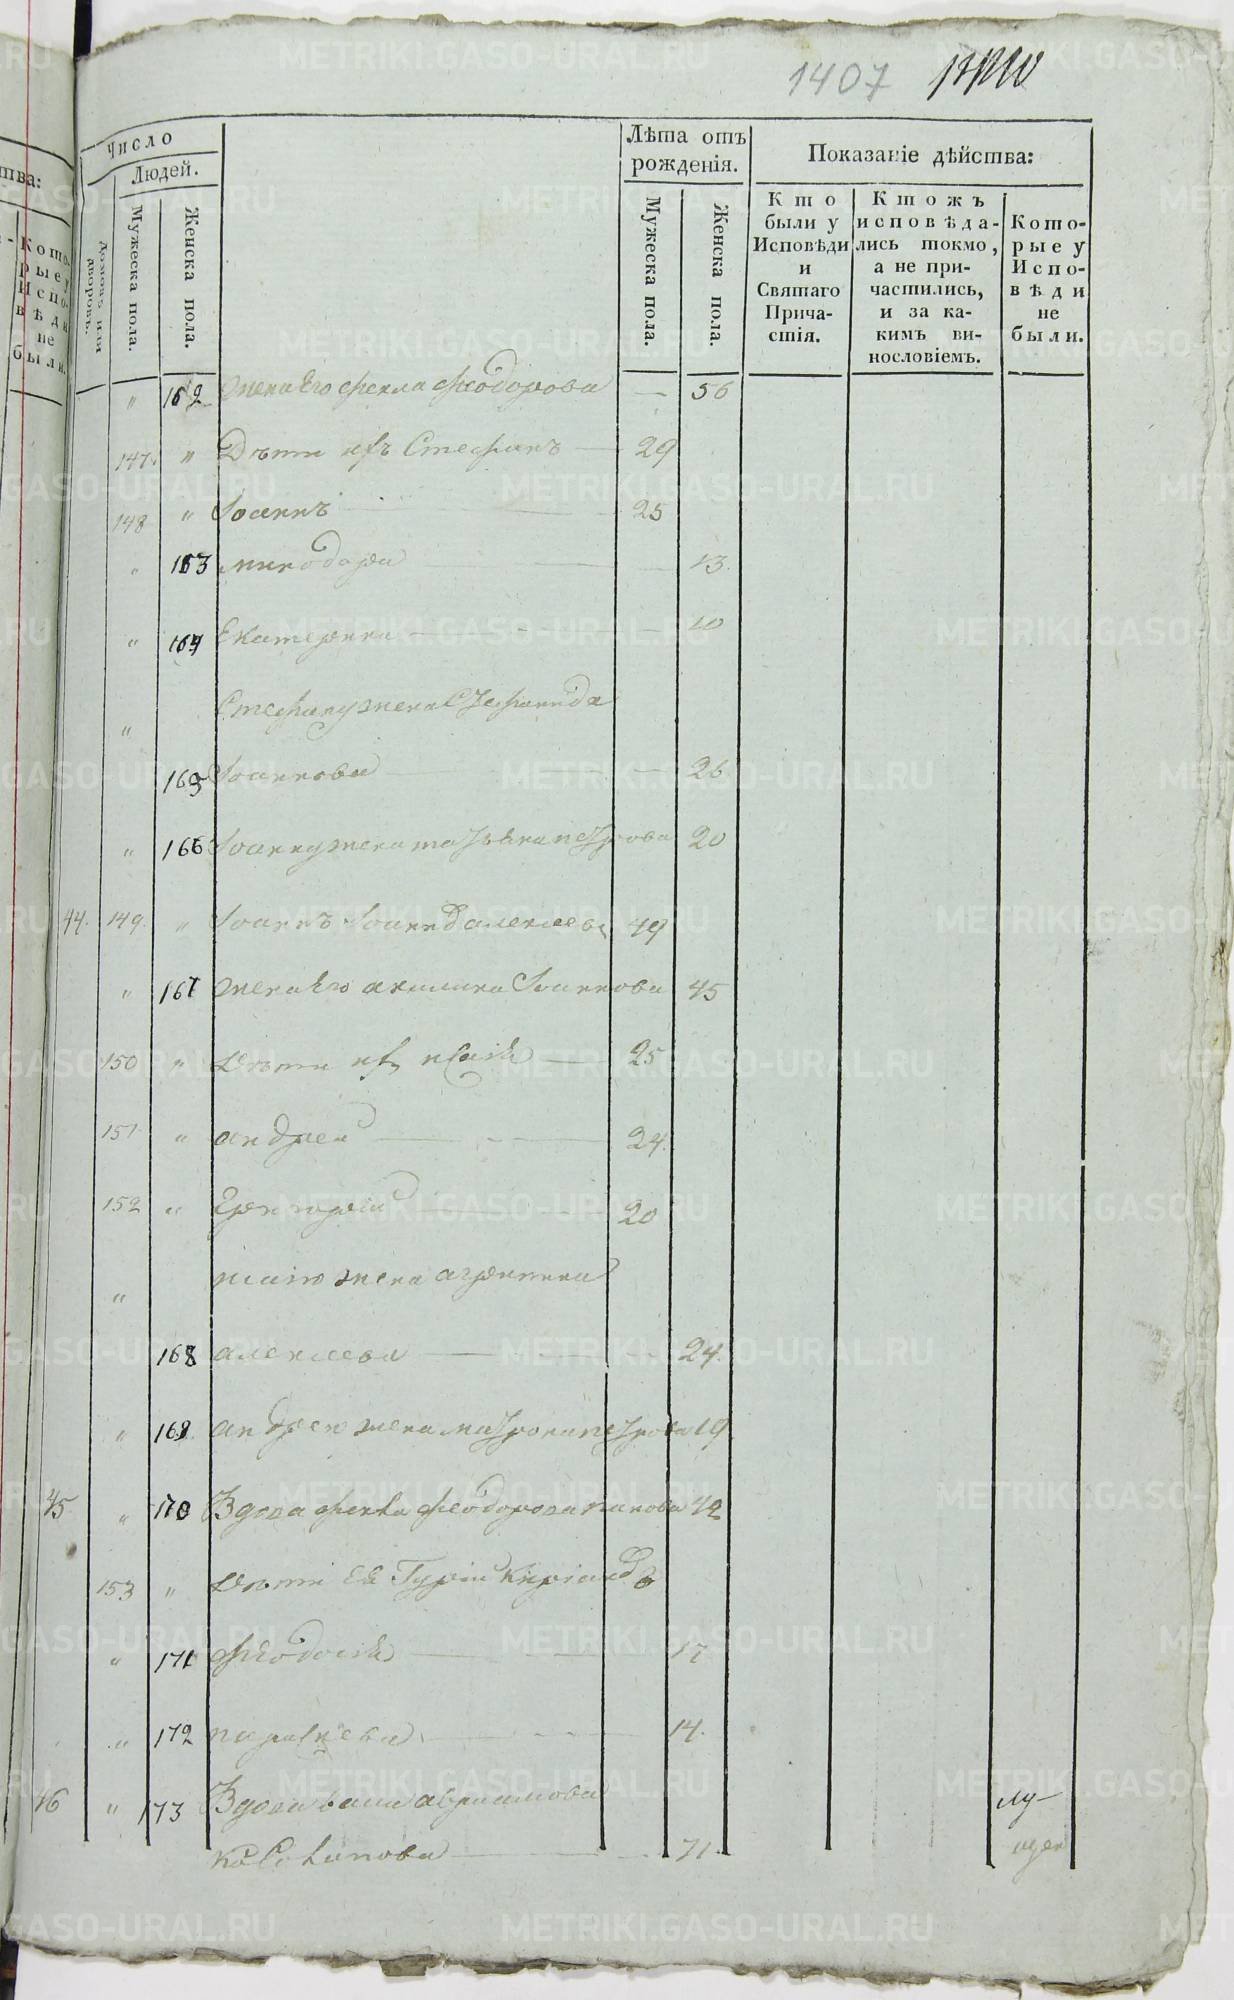 1407
Число
Людей.
домовъ или дворовъ.
Мужеска пола.
Женска пола.
Лѣта отъ рожденія.
Мужеска пола.
Женска пола.
Показаніе дѣйства:
Кто были у Исповѣди и Святаго Причастія.
Ктожъ исповѣдались токмо, а не причастились, и за какимъ винословіемъ.
Которые у Исповѣди не были.
" 162 жена Его Фекла Феодорова — 56
147 " Дѣти ихъ Стефанъ — 29
148 " Іоаннъ 25
" 163 Минодора 13.
" 164 Екатерина 10
" Стефану жена Стефанида
165 Іоаннова 26
" 166 Іоанну жена Татьяна Петрова 20
44. 149. " Іоаннъ Іоанновъ Алексеевъ 49
" 167 жена Его Акилина Іоаннова 45
150 " Дѣти ихъ Исаія 25
151 " Андрей 24.
152 " Григорій 20
" Исаію жена Агрипина
168 Алексеева 24.
" 169 Андрею жена Матрона Петрова 19
45 " 170 Вдова Фекла Феодорова 42
153 " Дѣти Ея Гурій 6
" 171 Феодосія 17
" 172 Параскева 14.
46 " 173 Вдова Авраамова
71.
METRIKI.GASO-URAL.RU